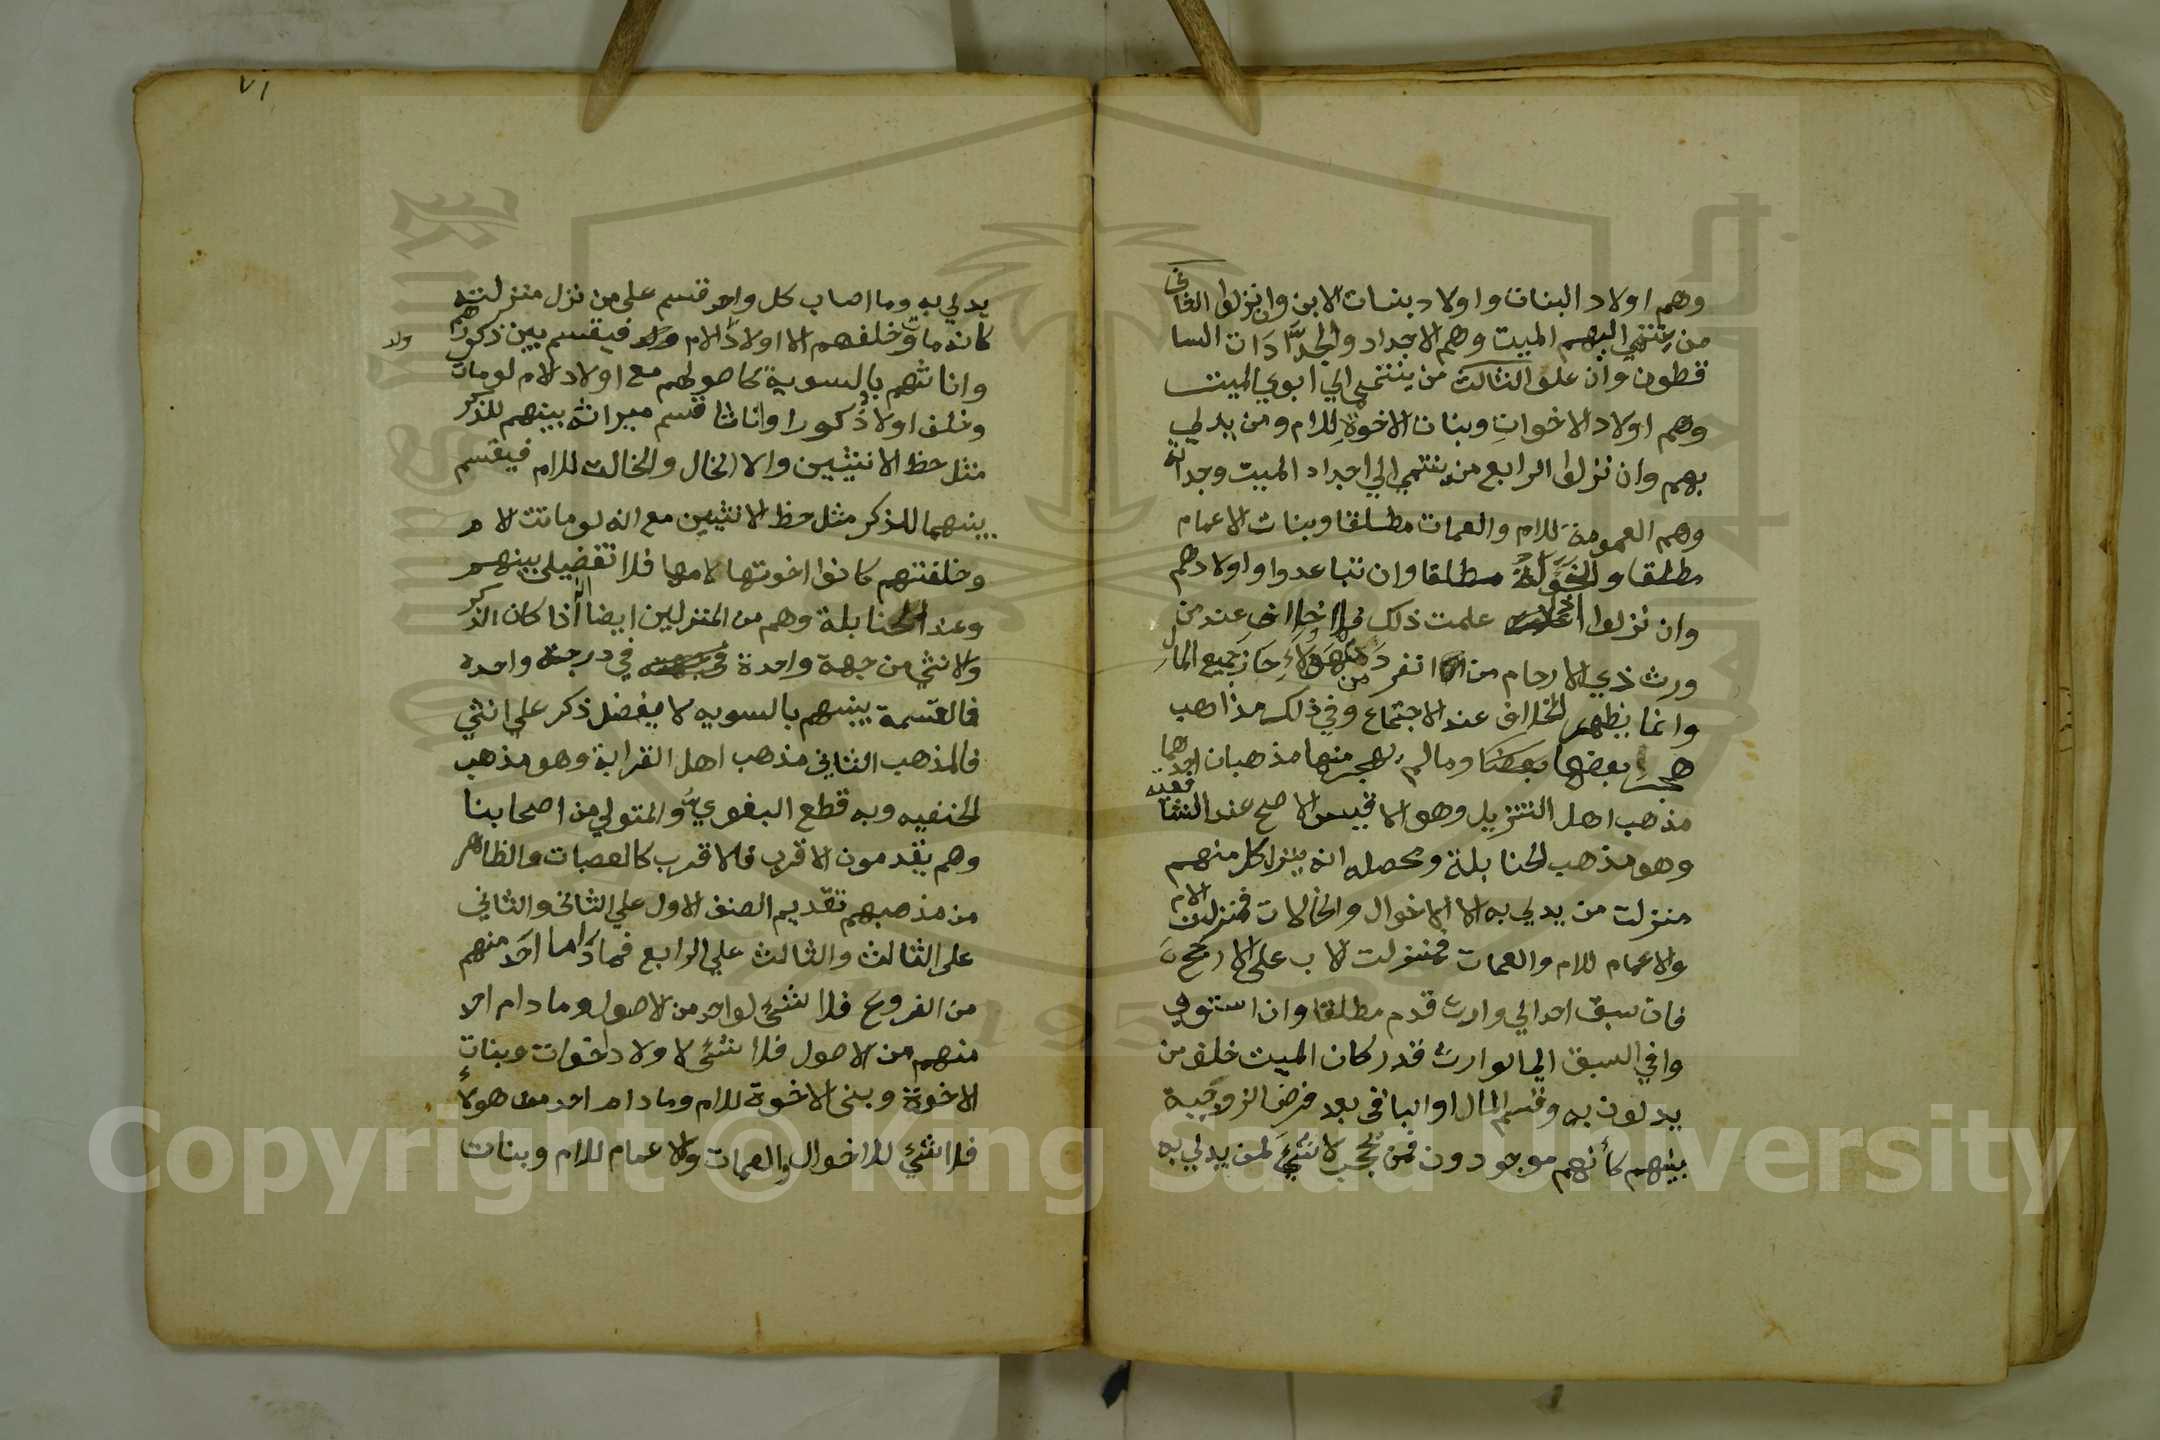 وهم اولاد البنات واولاد بنات الابن وان نزلوا الثاني
من ينتمي اليهم الميت وهم الاجداد والجدات السا
قطون وان علوا الثالث من ينتمي الي ابوي الميت
وهم اولاد الاخوات وبنات الاخوة للام ومن يدلي
بهم وان نزلوا الرابع من ينتمي الي اجداد الميت وجداته
وهم العمومة للام والعمات مطلقا وبنات الاعمام
مطلقا والخؤلة مطلقا وان تباعدوا واولادهم
وان نزلوا اذا علمت ذلك فلا خلاف عند من
ورث ذي الارحام من انفرد من هؤلاء حاز جميع المال
وانما يظهر الخلاف عند الاجتماع وفي ذلك مذاهب
هجر بعضها وما لم يهجر منها مذهبان احدهما
مذهب اهل التنزيل وهو الاقيس الاصح عند الشافعيه
وهو مذهب الحنابلة ومحصله انه ينزل كل منهم
منزلت من يدلي به الا الاخوال والخالات فمنزلت الام
والاعمام للام والعمات فمنزلت الاب على الارجح
فان سبق احد الي وارث قدم مطلقا وان استو
وا في السبق الي الوارث قدر كان الميت خلف من
يدلون به وقسم المال او الباقي بعد فرض الزوجية
بينهم كأنهم موجودون فمن يحجب لا شيء لمن يدلي به
٧١
يدلي به وما اصاب كل واحد قسم على من نزل منزلته
كانه مات وخلفهم الا اولاد ولد الام فيقسم بين ذكورهم
واناثهم بالسوية كاصولهم مع اولاد الام لو مات
وخلف اولاد ذكورا واناثا قسم ميراثه بينهم للذكر
مثل حظ الانثيين والا الخال والخالت للام فيقسم
بينهما للذكر مثل حظ الانثيين مع انه لو ماتت الام
وخلفتهم كانوا اخوتها لامها فلا تفضيل بينهم
وعند الحنابلة وهم من المنزلين ايضا انه اذا كان الذكر
والانثي من جهة واحدة في درجة واحدة
فالقسمة بينهم بالسويه لا يفضل ذكر علي انثي
فالمذهب الثاني مذهب اهل القرابة وهو مذهب
الحنفيه وبه قطع البغوي والمتولي من اصحابنا
وهم يقدمون الاقرب فالاقرب كالعصبات والظاهر
من مذهبهم تقديم الصنف الاول علي الثاني والثاني
على الثالث والثالث علي الرابع فما دام احد منهم
من الفروع فلا شيء لواحد من الاصول وما دام احد
منهم من الاصول فلا شيء لاولاد اخوات وبنات
الاخوة وبني الاخوة للام وما دام احد من هولاء
فلا شيء للاخوال والعمات والاعمام للام وبنات
ولد